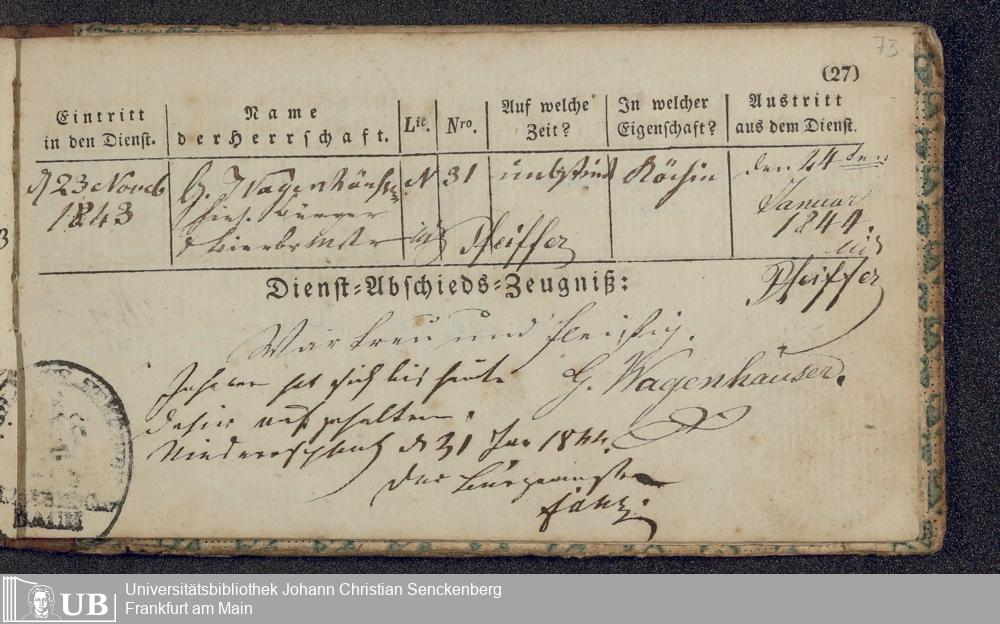 73
(27)
Eintritt in den Dienst.
Name der Herrschaft.
Lit.
Nro.
Auf welche Zeit?
In welcher Eigenschaft?
Austritt aus dem Dienst.
d 23 Novemb 1843
G. Wagenhäuser
hies. Bürger
& Bierbr Mstr
N
31
unbestimt
Köchin
den 24ten
Januar
1844.
Pfeiffer
Pfeiffer
Dienst-Abschieds-Zeugniß:
War treu und fleißig.
G. Wagenhäuser.
hat sich bis heute
dahier aufgehalten.
d 31 Jan 1844.
Der Bürgermeister
UB
Universitätsbibliothek Johann Christian Senckenberg
Frankfurt am Main